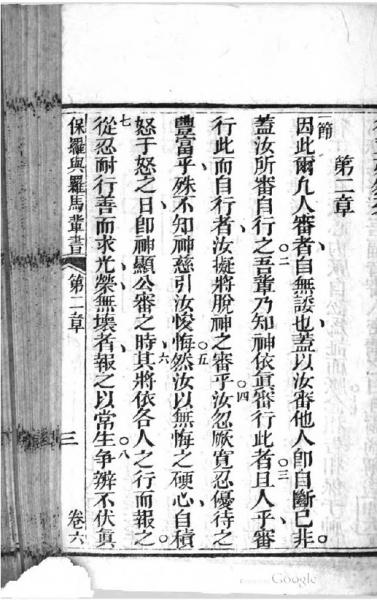 第二章
一節
因此爾凡人審者自無諉也蓋以汝審他人卽自斷已非。
蓋汝所審自行之。二吾輩乃知神依眞審行此者。三且人乎審
行此而自行者汝擬將脫神之審乎。四汝忽厥寬忍優待之
豐富乎殊不知神慈引汝悛悔。五然汝以無悔之硬心自積
怒于怒之日卽神顯公審之時六其將依各人之行而報之。
七從忍耐行善而求光榮無壞者報之以常生。八爭辨不伏眞
保羅與羅馬輩書 第二章 三 卷六
Google